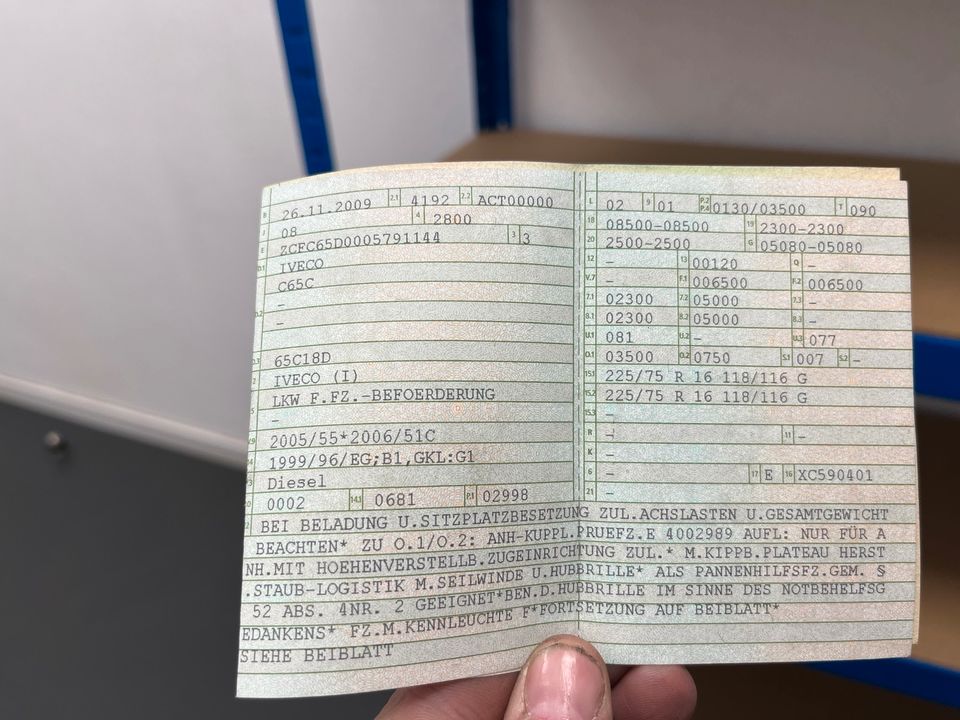 B 26.11.2009 2.1 4192 2.2 ACT00000
J 08 4 2800
E ZCFC65D0005791144 3 3
D.1 IVECO
C65C
D.2 –
–
D.3 65C18D
2 IVECO (I)
LKW F.FZ.-BEFOERDERUNG
5 –
V.9 2005/55*2006/51C
14 1999/96/EG;B1,GKL:G1
P.3 Diesel
10 0002 14.1 0681 P.1 02998
L 02 9 01 P.2 P.4 0130/03500 T 090
18 08500-08500 19 2300-2300
20 2500-2500 G 05080-05080
12 – 13 00120 Q –
V.7 – F.1 006500 F.2 006500
7.1 02300 7.2 05000 7.3 –
8.1 02300 8.2 05000 8.3 –
U.1 081 U.2 – U.3 077
O.1 03500 O.2 0750 S.1 007 S.2 –
15.1 225/75 R 16 118/116 G
15.2 225/75 R 16 118/116 G
15.3 –
R – 11 –
K –
6 – 17 E 16 XC590401
21 –
BEI BELADUNG U.SITZPLATZBESETZUNG ZUL.ACHSLASTEN U.GESAMTGEWICHT
BEACHTEN* ZU O.1/O.2: ANH-KUPPL.PRUEFZ.E 4002989 AUFL: NUR FÜR A
NH.MIT HOEHENVERSTELLB.ZUGEINRICHTUNG ZUL.* M.KIPPB.PLATEAU HERST
.STAUB-LOGISTIK M.SEILWINDE U.HUBBRILLE* ALS PANNENHILFSFZ.GEM. §
52 ABS. 4NR. 2 GEEIGNET*BEN.D.HUBBRILLE IM SINNE DES NOTBEHELFSG
EDANKENS* FZ.M.KENNLEUCHTE F*FORTSETZUNG AUF BEIBLATT*
SIEHE BEIBLATT